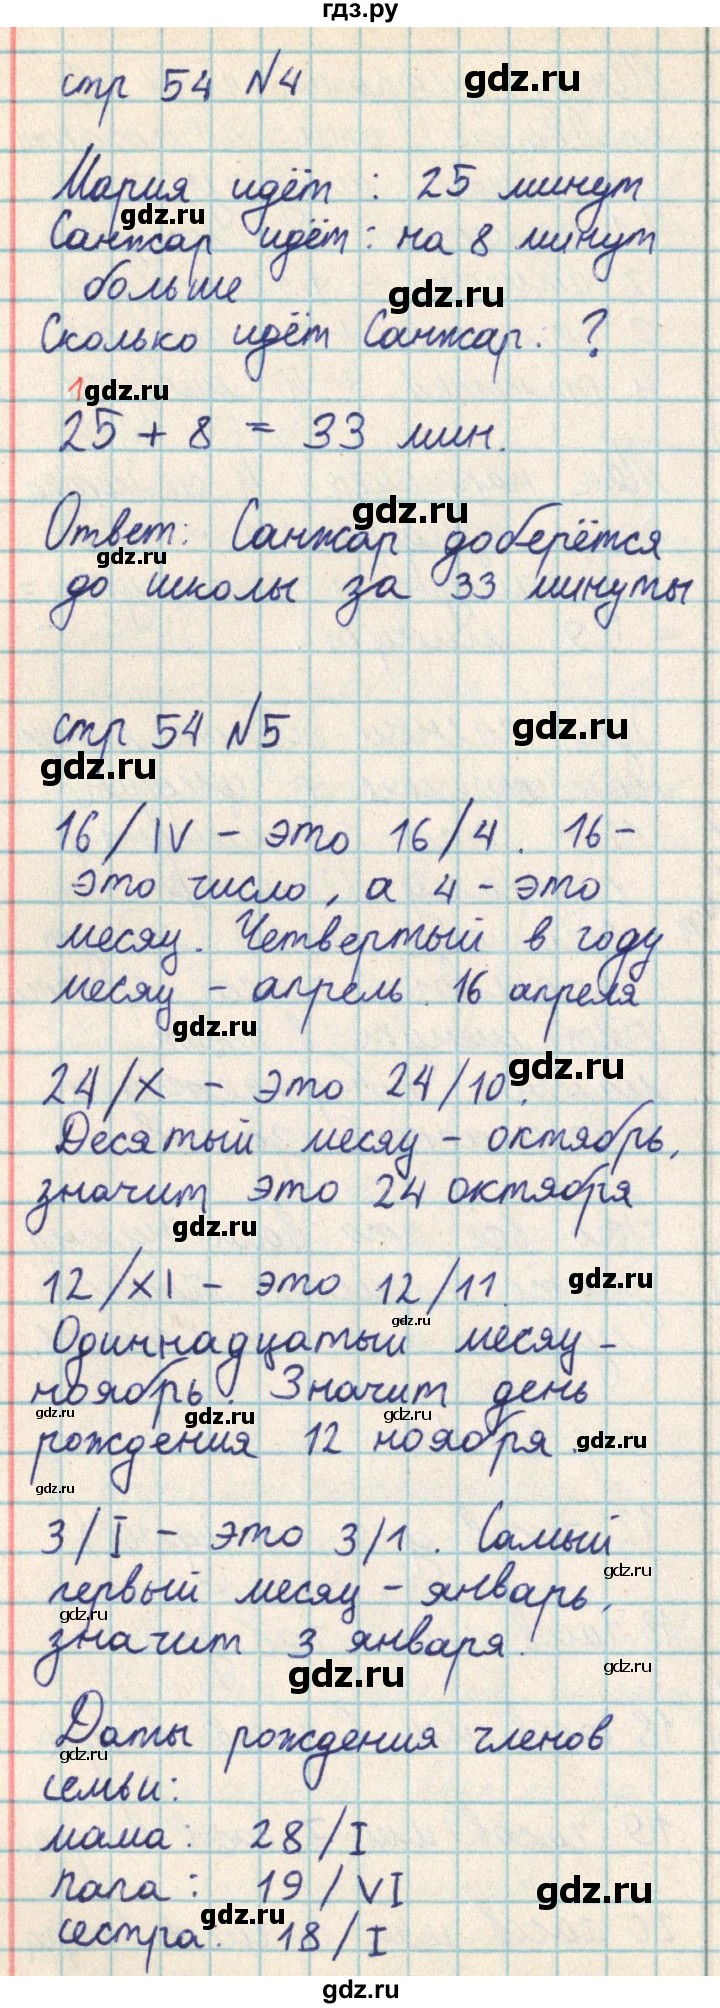 гдз.ру
стр 54 №4
gdz.ru
Мария идёт : 25 минут
gdz.ru
Санжар идёт : на 8 минут
больше
gdz.ru
Сколько идёт Санжар : ?
1
gdz.ru
25 + 8 = 33 мин.
gdz.ru
Ответ: Санжар доберётся
gdz.ru
до школы за 33 минуты
стр 54 №5
gdz.ru
gdz.ru
16/IV - это 16/4. 16-
это число, а 4 - это
месяц. Четвертый в году
месяц - апрель. 16 апреля
gdz.ru
24/X - это 24/10.
gdz.ru
Десятый месяц - октябрь,
значит это 24 октября
gdz.ru
12/XI - это 12/11
gdz.ru
gdz.ru
Одиннадцатый месяц -
ноябрь. Значит день
gdz.ru
gdz.ru
gdz.ru
рождения 12 ноября.
gdz.ru
gdz.ru
3/I - это 3/1. Самый
gdz.ru
первый месяц - январь,
gdz.ru
значит 3 января.
gdz.ru
gdz.ru
Даты рождения членов
gdz.ru
семьи:
мама: 28/I
папа: 19/VI
gdz.ru
gdz.ru
сестра: 18/I
gdz.ru